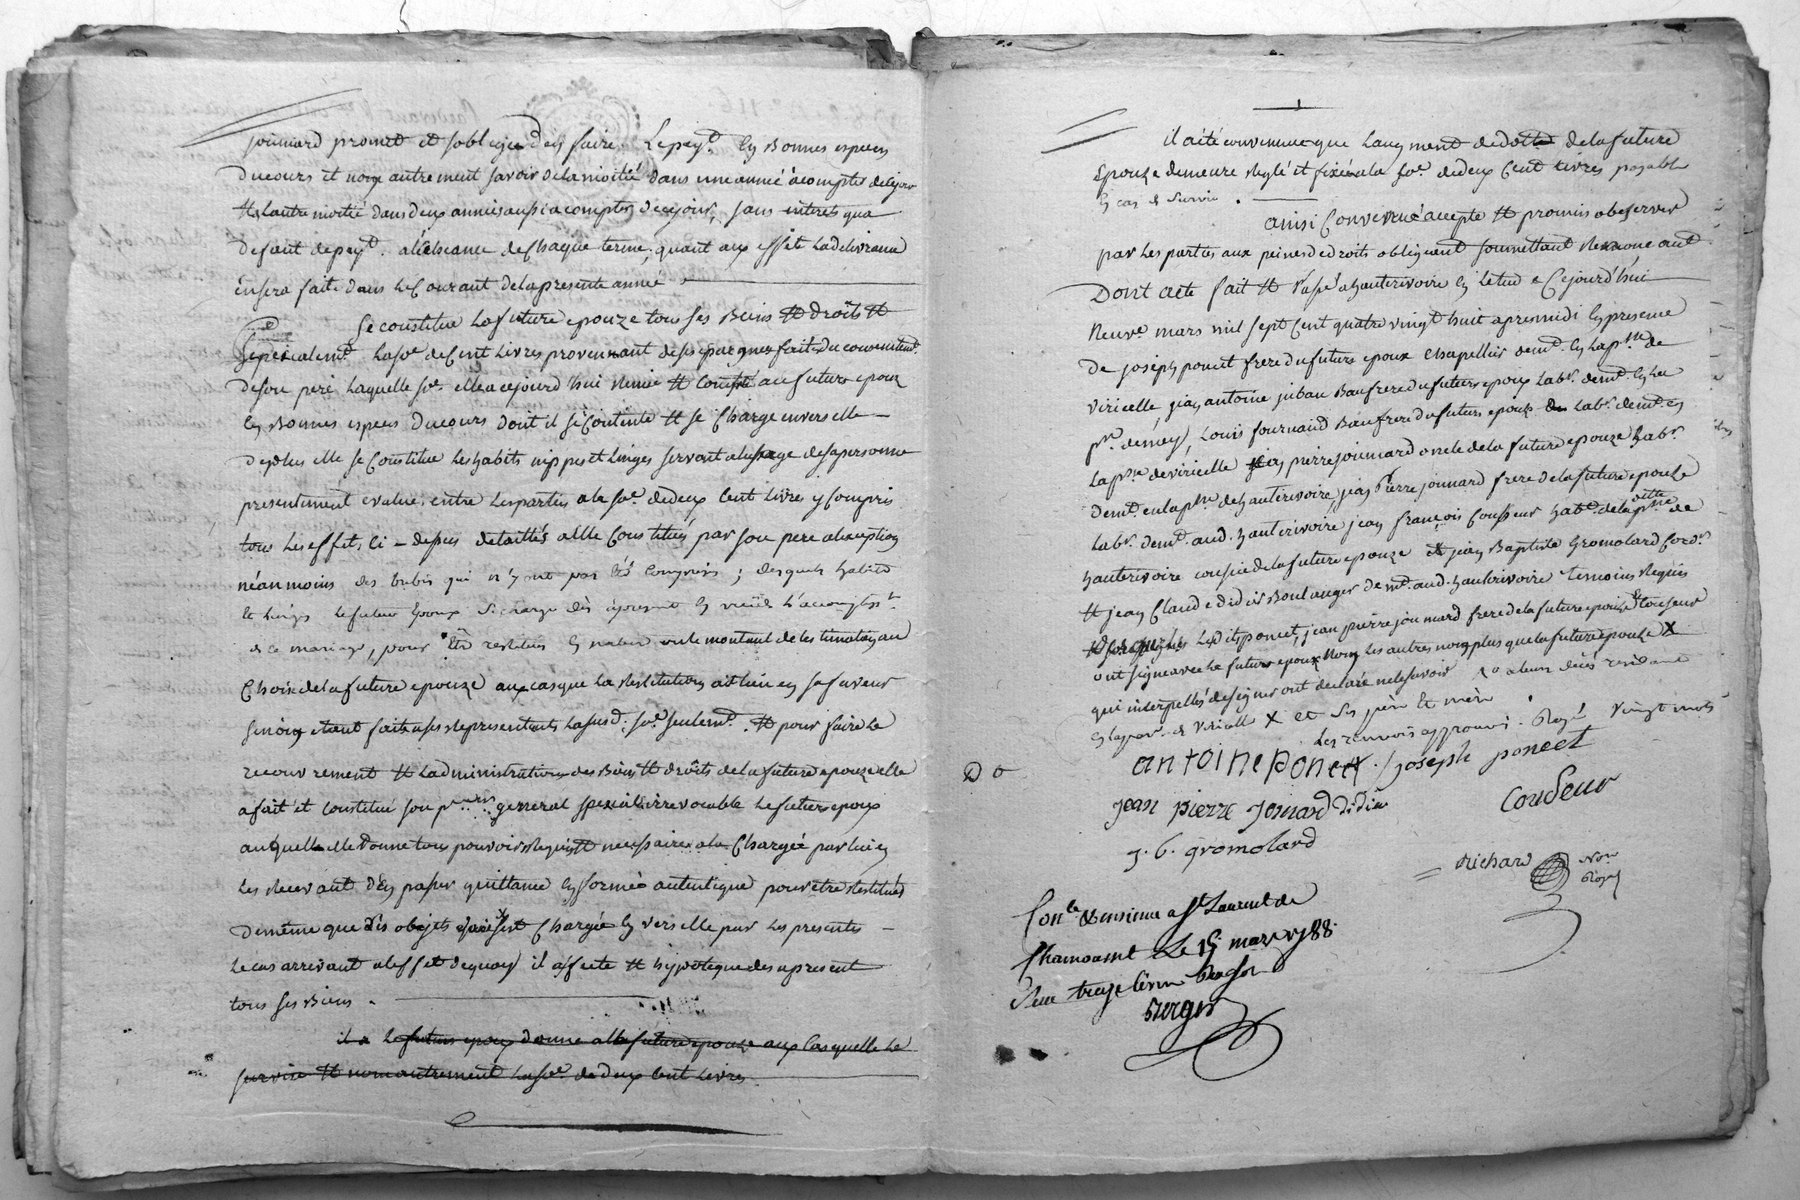 jouinard promet et s'oblige d'en faire. Le payt. en Bonnes especes
Du cours et non autrement savoir de la moitié dans une année à compter de ce jour
Et l'autre moitié dans deux années aussi a compter de ce jour, sans interets qua
defaut de payt. a l'echeance de chaque terme, quant aux effets la delivrance
En sera faite dans le Courant de la presente année
Se constitue la future epouze tous ses Biens et droits et
specialemt. la se. de Cent Livres provennant de ses epargnes faites du consentemt.
de son pere laquelle se. elle a cejourd'hui remie et compté au futur epoux
en Bonnes especes du cours dont il se Contente et se Charge envers elle
De plus elle se Constitue les habits nippes et linges servant a l'usage de sa personne
presentement evalués entre les parties a la se. de deux Cent Livres y compris
tous les effets ci-depuis detaillés a elle Constitués par son pere a l'exeption
néanmoins des qui n'y ont pas été compris; desquels habits
et linges le futur Epoux se charge dès apresent
de ce mariage, pour être restitués en nature ou le montant de les au
Choix de la future epouze aux cas que la restitution ait lieu en sa faveur
Sinon etant faite a ses representants la sud. se. seulemt. et pour faire le
recouvrement et l'administration des Biens et droits de la future epouze elle
a fait et constitué son general special irrevocable le futur epoux
auquel elle donne tous pouvoirs requis et necessaires a la Chargée par lui en
les recevant d'en passer quittance en forme autentique pour etre restitués
de même que dis objets Chargée en vers elle par les presentes
le cas arrivant a l'effet de quoy il affecte et hypoteque des apresent
tous ses Biens.
il a le futur epoux donné a la future epouze aux Cas quelle le
survive et non autrement la se. de deux Cent Livres
il a été convenu que l'augment de dotte de la future
Epouze demeure reglé et fixé a la se. de deux Cent Livres payable
en cas de survie.
ainsi Convenu accepté et promis observer
par les parties aux peines de droits obligeant soumettant renonceant
Dont acte fait et Passé a hauterivoire en l'etude Cejourd'hui
Neuve. mars mil sept Cent quatre vingt huit apres midi en presence
de joseph poncet frere du futur epoux Chapellier demt. en la pse. de
Viricelle, jean antoine jubau Baufrere du futur epoux labr. demt. en la
pse. de meys, Louis fournaud Baufrere du futur epoux labr. demt. en
la pse. de viricelle jean pierre jouinard oncle de la future epouze labr.
demt. en la pse. de hauterivoire, jean Pierre jouinard frere de la future epouze
labr. demt. aud. hauterivoire jean françois Couseur habt. de la ditte pse. de
hauterivoire cousin de la future epouze et jean Baptiste Gromolard Cord.
et jean Claude didier Boulanger demt. aud. hauterivoire temoins requis
lesdits poncet, jean pierre jouinard frere de la future epouze et Couseur
ont signé avec le futur epoux Non les autres non plus que la future epouze X
qui interpellés de signer ont declaré ne le savoir
en la par. de Viricelle X et ses père et mère
Les renvois approuvé. Rayé vingt mots
antoine poncet
joseph poncet
Jean pierre Jouinard
Didier
Couseur
J. b. gromolard
Richard
Con.le & insinue a St Laurent de
Chamousset Le 15 mars 1788.
Berger